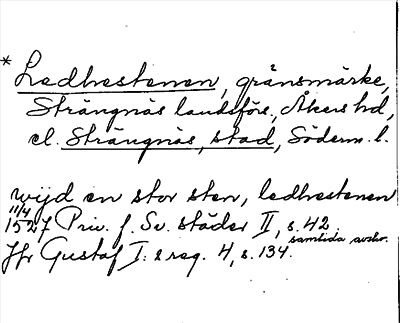 * Ledhestenen, gränsmärke,
Strängnäs landsförs., Åkers hd,
el. Strängnäs, stad, Söderm. l.
wijd en stor sten, ledhestenen
11/4 1527 Priv. f. Sv. städer II, s. 42.
samtida avskr.
Jfr Gustaf I:s reg. 4, s. 134.